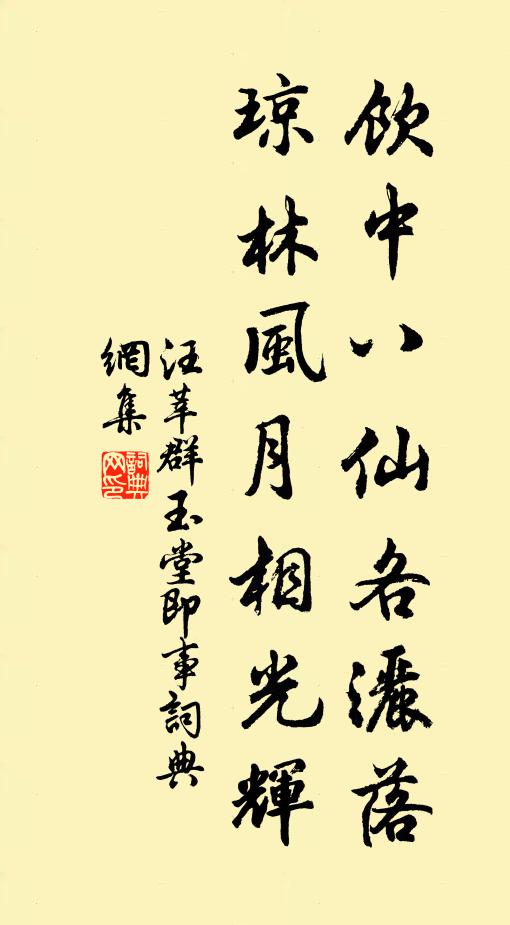 飲中八仙各灑落
琼林風月相光輝
汪莘群玉堂即事詞典
網集
詞典
網印